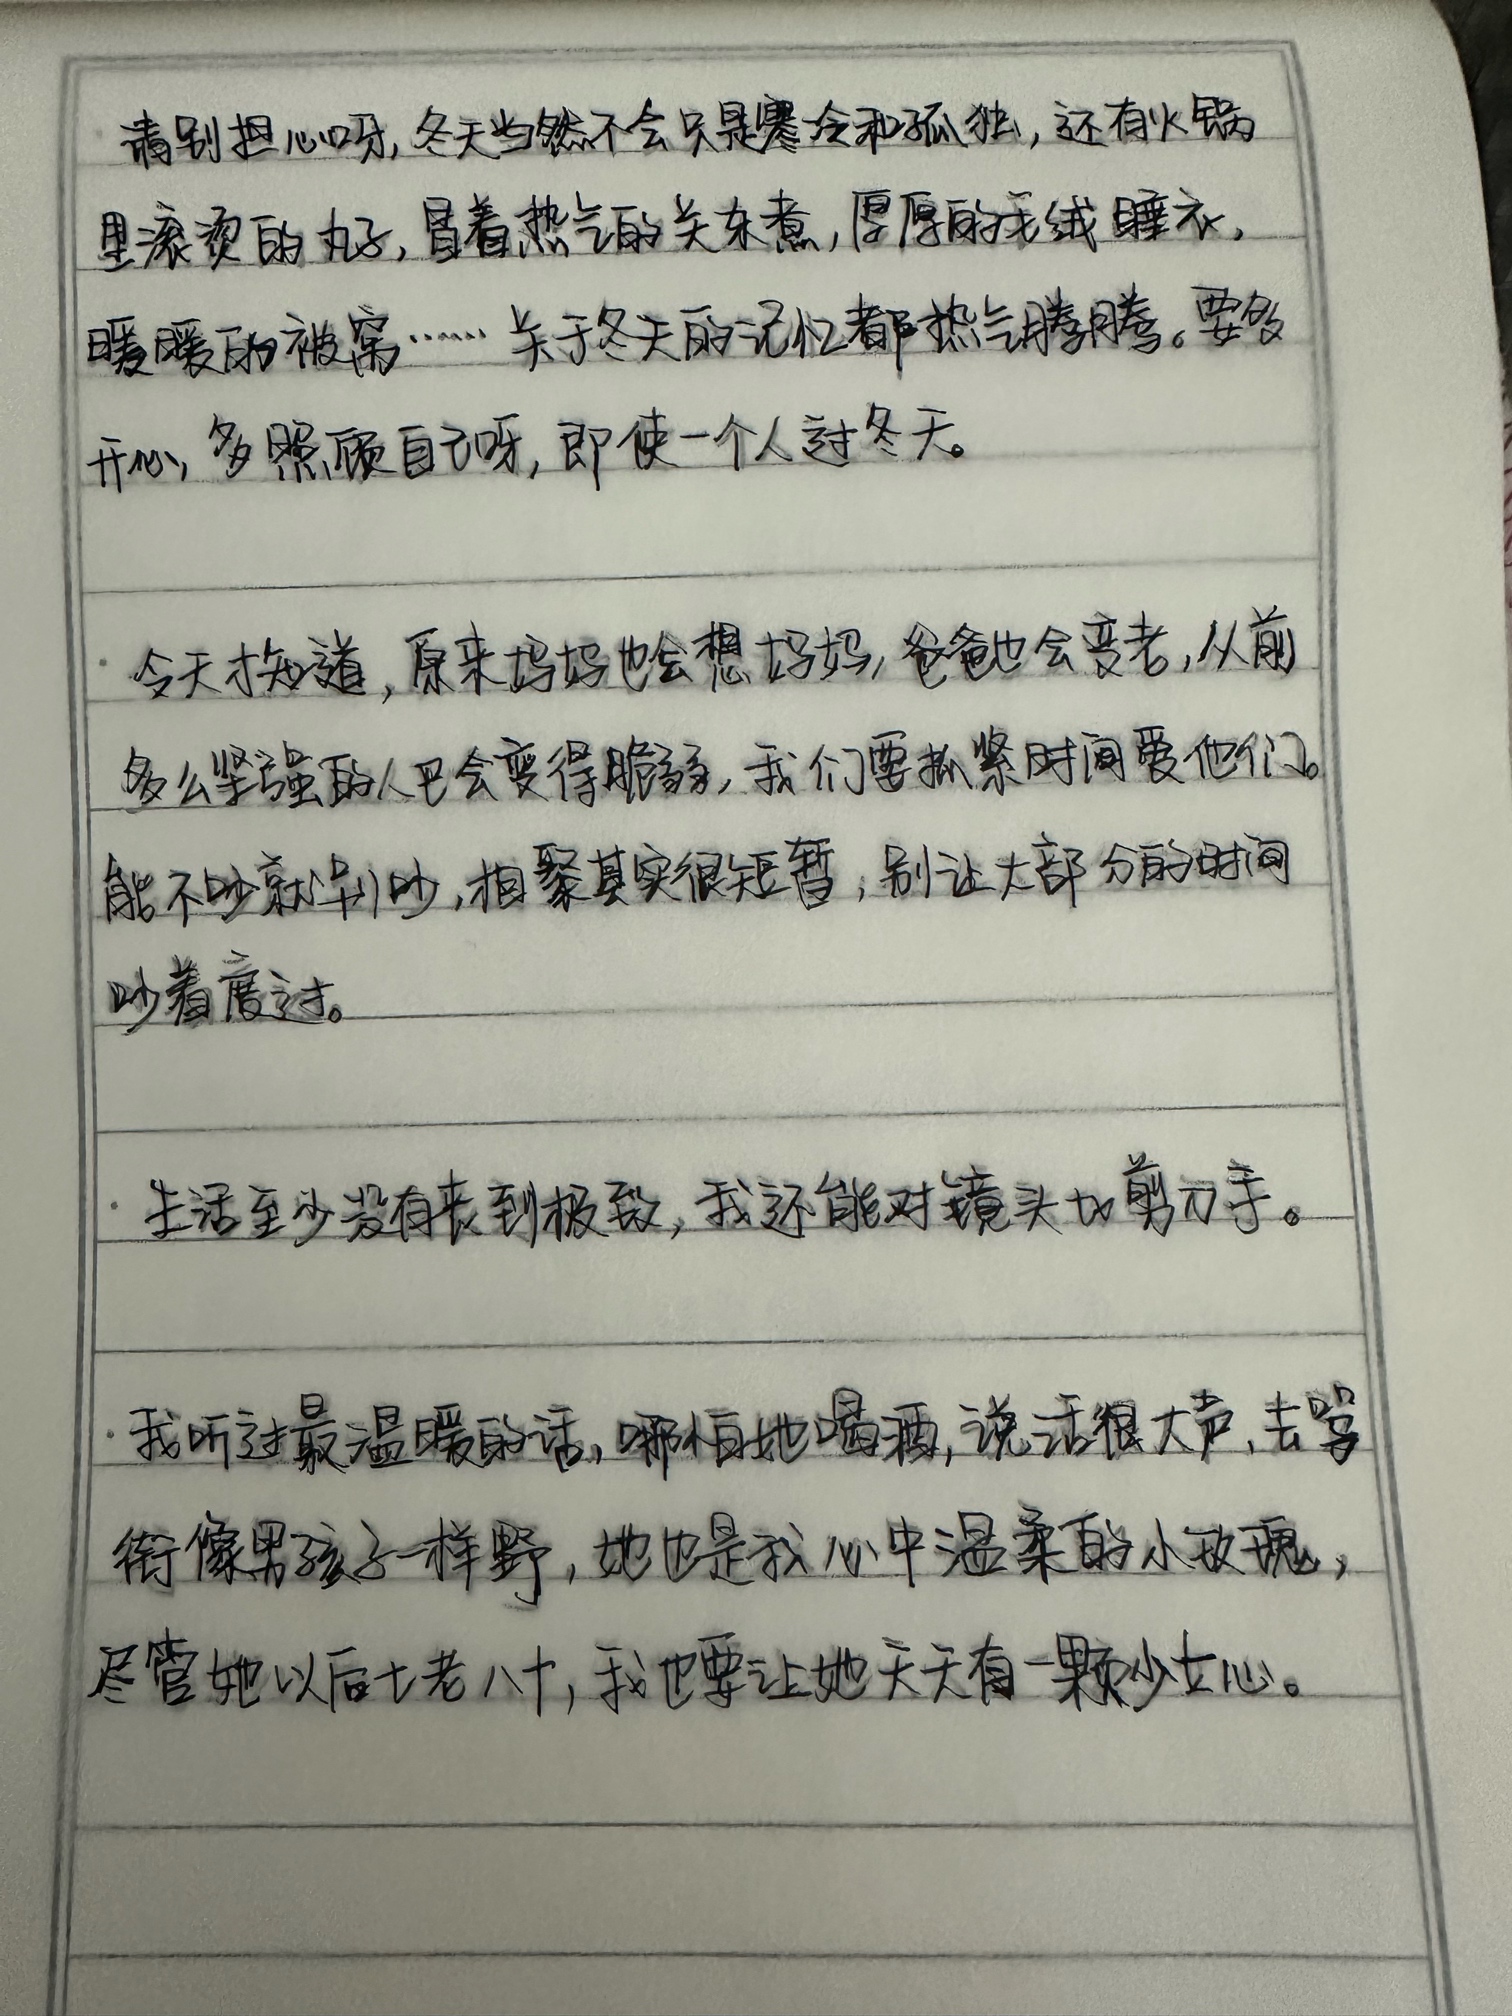 · 请别担心呀，冬天当然不会只是寒冷和孤独，还有火锅
里滚烫的丸子，冒着热气的关东煮，厚厚的毛绒睡衣，
暖暖的被窝……关于冬天的记忆都热气腾腾。要多
开心，多照顾自己呀，即使一个人过冬天。
· 今天才知道，原来妈妈也会想妈妈，爸爸也会变老，从前
多么坚强的人也会变得脆弱，我们要抓紧时间爱他们。
能不吵就别吵，相聚其实很短暂，别让大部分的时间
吵着度过。
· 生活至少没有丧到极致，我还能对镜头比剪刀手。
· 我听过最温暖的话，哪怕她喝酒，说话很大声，去
像男孩子一样野，她也是我心中温柔的小玫瑰，
尽管她以后七老八十，我也要让她天天有一颗少女心。